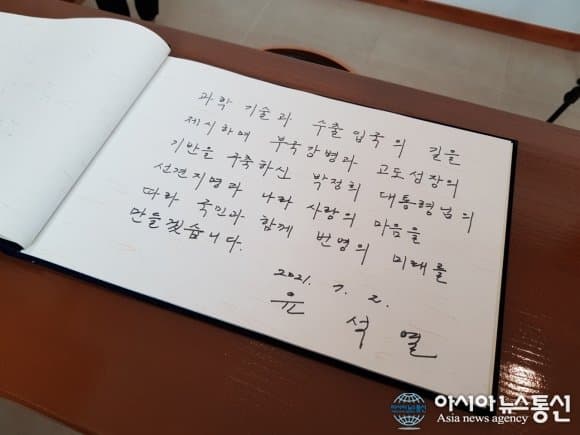 과학 기술과 수출 입국의 길을
제시하며 부국강병과 고도성장의
기반을 구축하신 박정희 대통령님의
선견지명과 나라 사랑의 마음을
따라 국민과 함께 번영의 미래를
만들겠습니다.
2021. 7. 2.
윤 석 열
아시아뉴스통신
Asia news agency